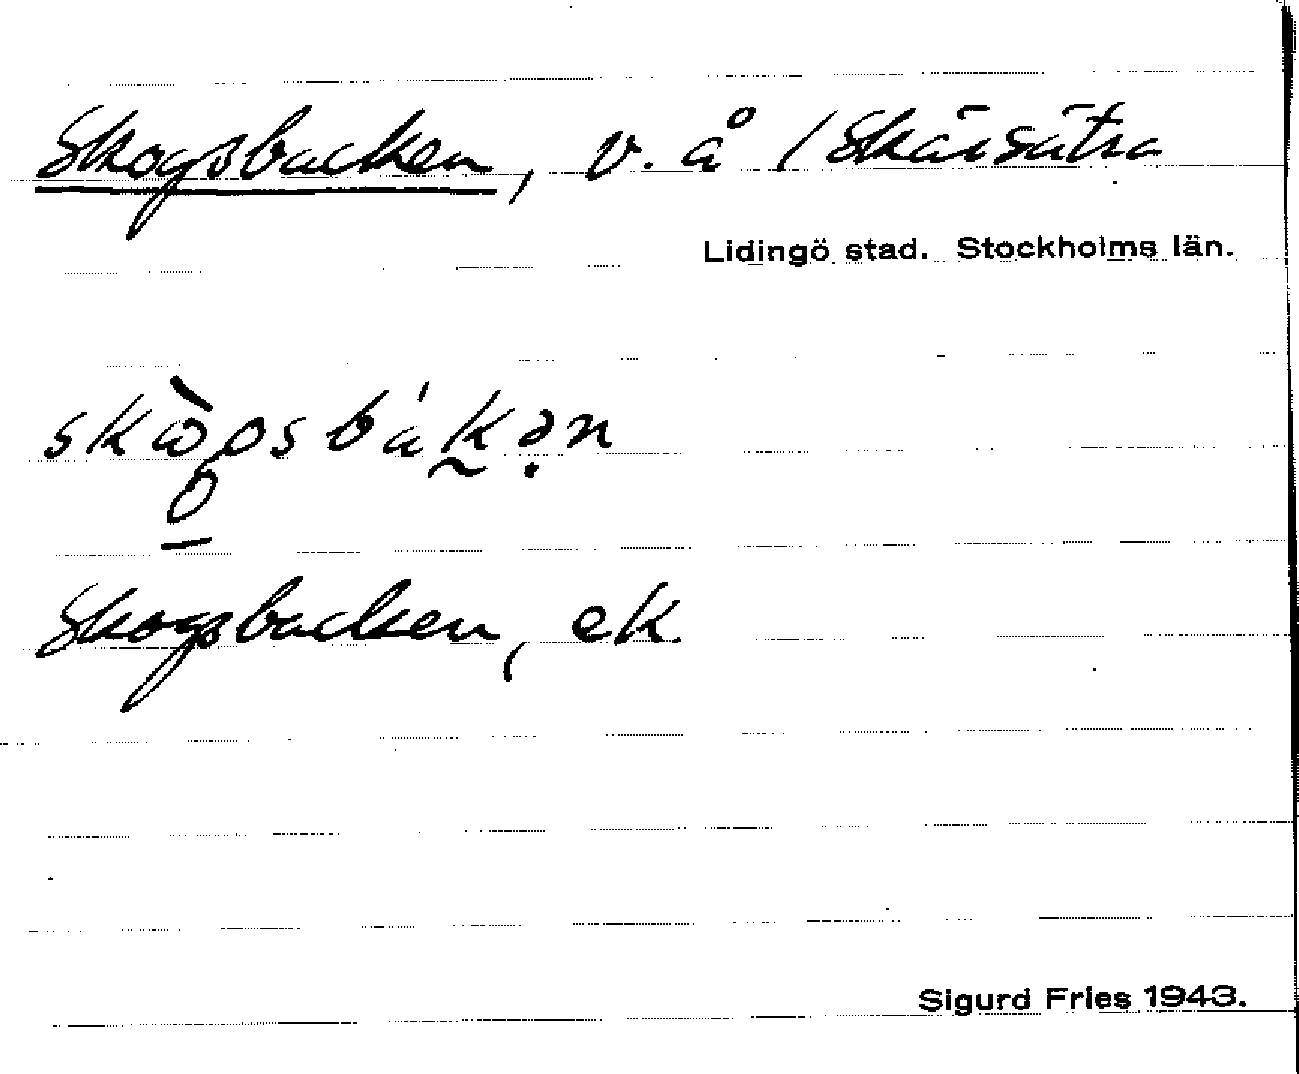 Skogsbacken, v. å / Skärsätra
Lidingö stad. Stockholms län.
Skogsbacken, ek
Sigurd Fries 1943.